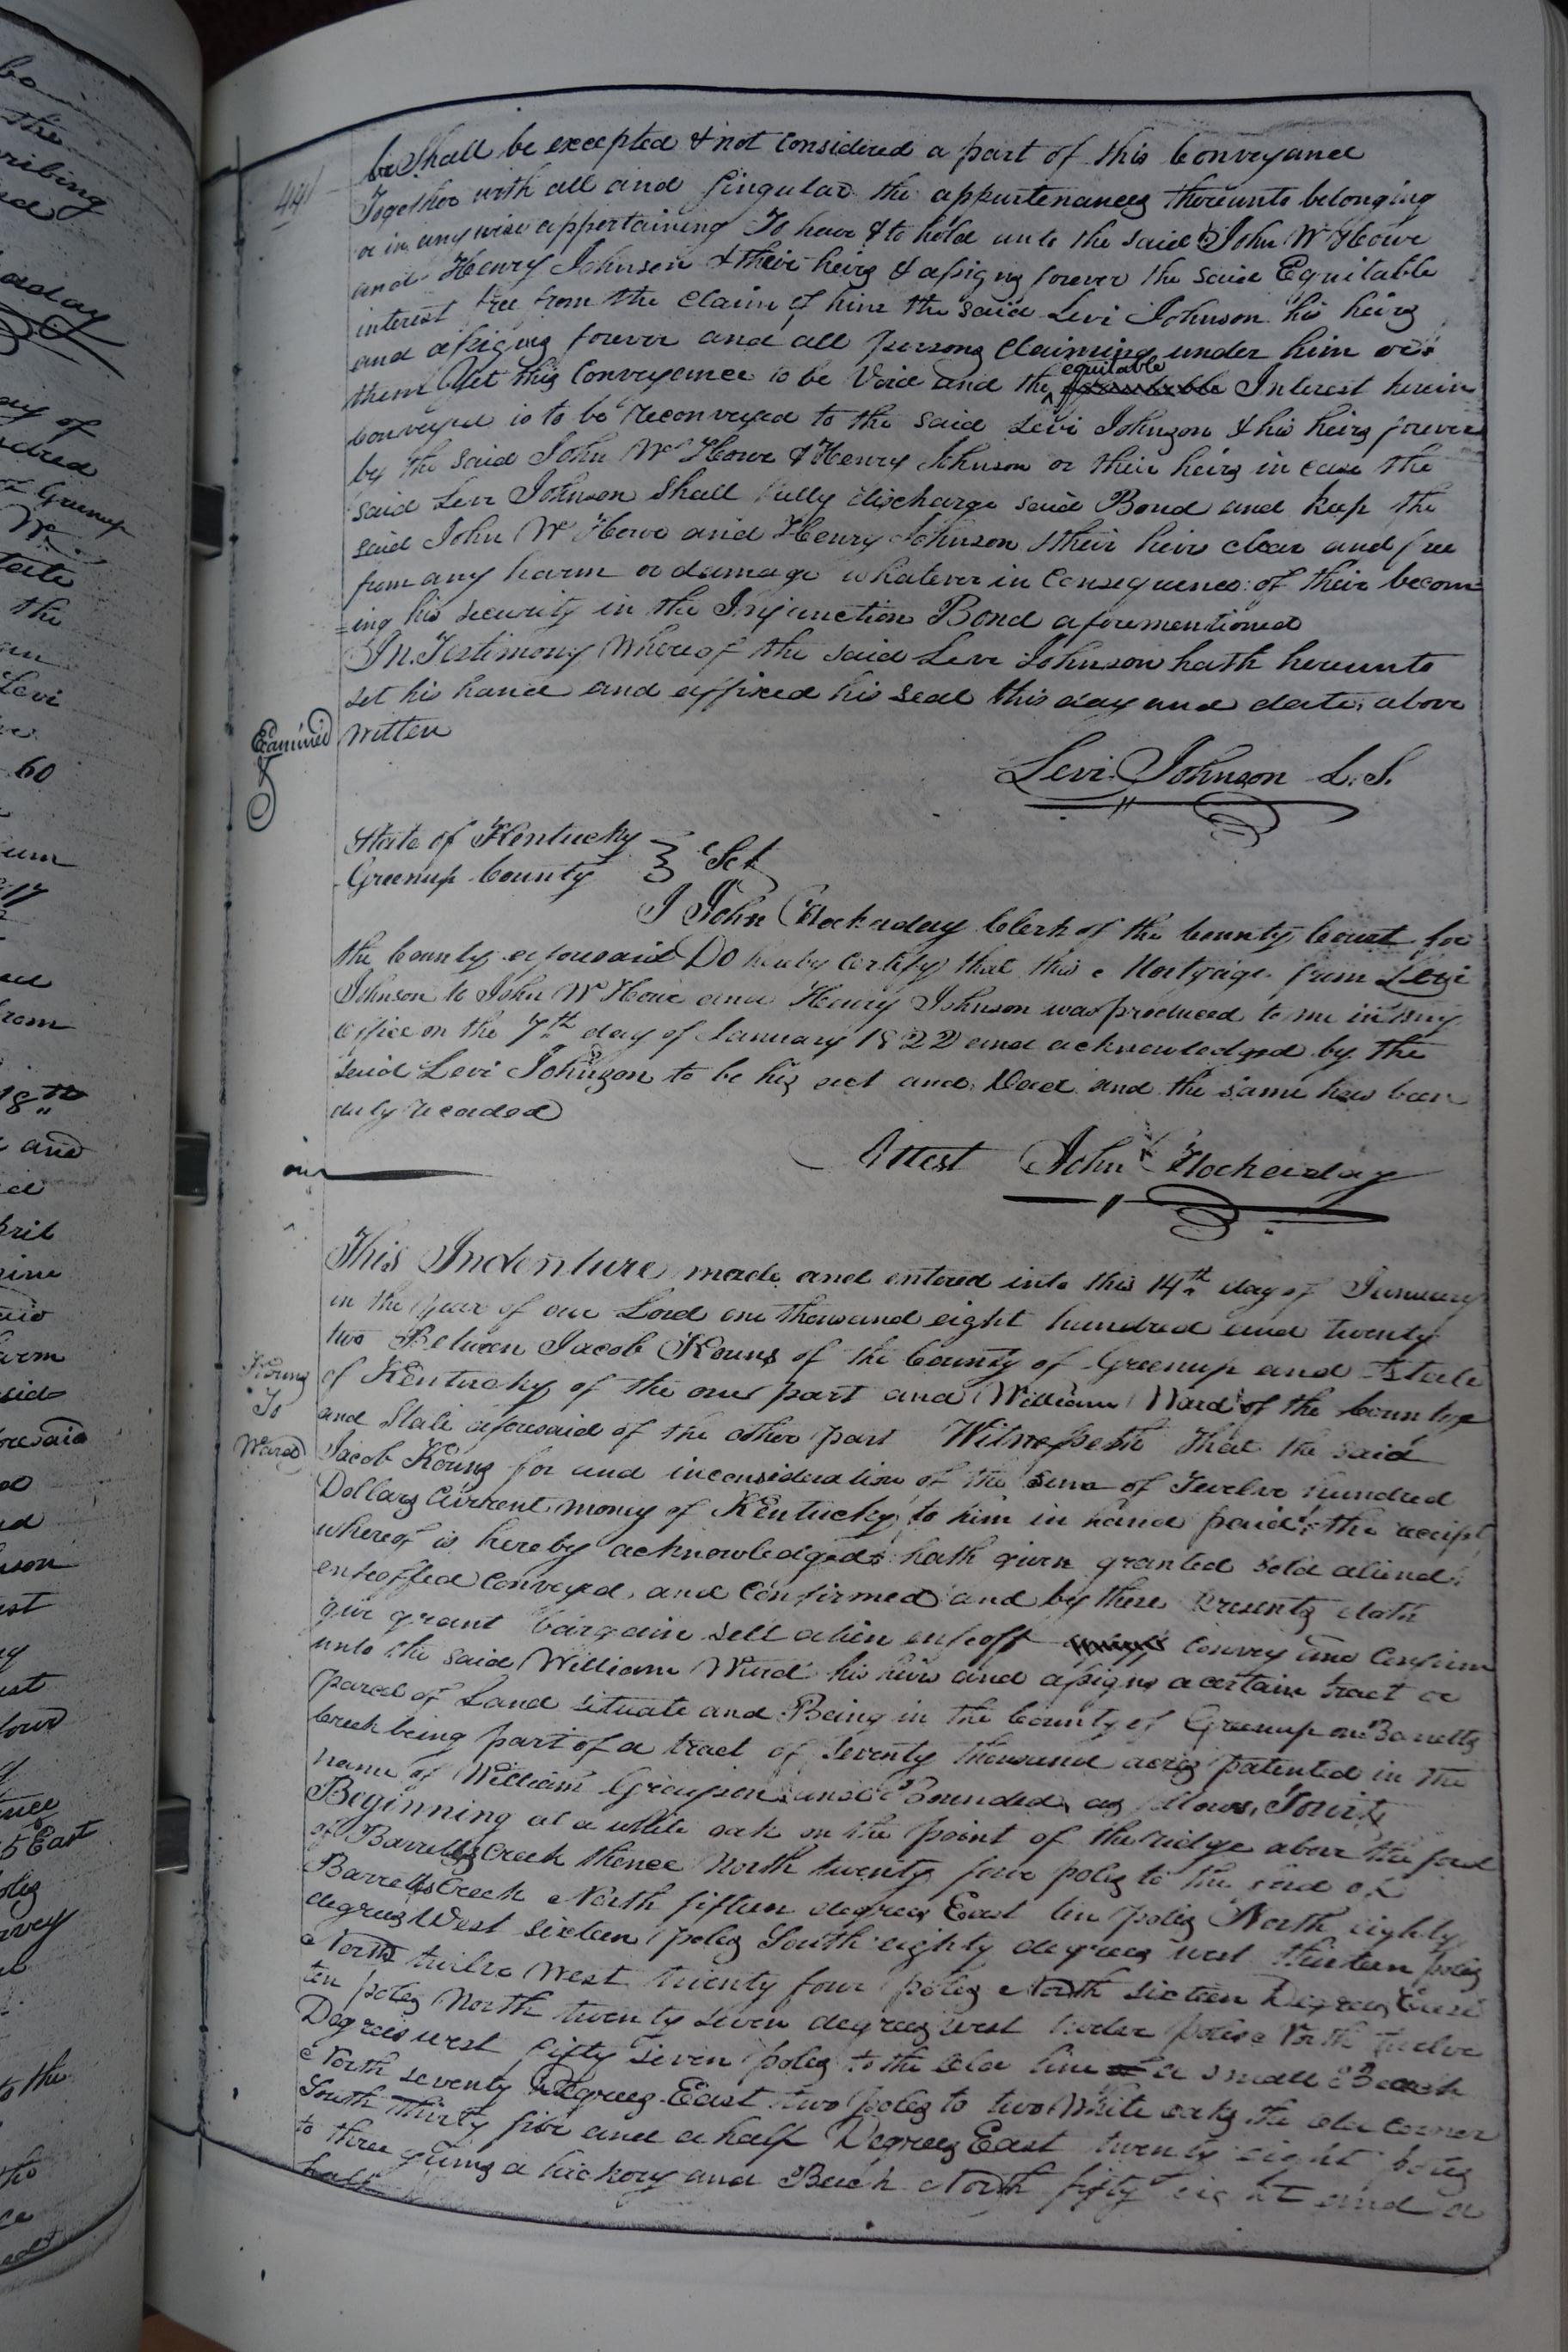 44
be Shall be excepted & not Considered a part of this Conveyance
Together with all and Singular the appurtenances thereunto belonging
or in any wise appertaining To have & to hold unto the said John W Howe
and Henry Johnson & their heirs & assigns forever the said Equitable
interest free from the Claim of him the said Levi Johnson his heirs
and assigns forever and all persons Claiming under him or
them Yet this Conveyance is to be Void and the equitable Interest herein
Conveyed is to be reconveyed to the said Levi Johnson & his heirs forever
by the said John W Howe & Henry Johnson or their heirs in case the
said Levi Johnson Shall fully discharge said Bond and keep the
said John W Howe and Henry Johnson & their heirs clear and free
from any harm or damage whatever in Consequence of their becom=
=ing his security in the Injunction Bond aforementioned
In Testimony Whereof the said Levi Johnson hath hereunto
set his hand and affixed his seal this day and date above
Examined
Written
Levi Johnson L.S.
State of Kentucky
Greenup County } Sct
I John Hockaday Clerk of the County Court for
the County aforesaid Do hereby Certify that this Mortgage from Levi
Johnson to John W Howe and Henry Johnson was produced to me in my
office on the 7th day of January 1822 and acknowledged by the
said Levi Johnson to be his act and Deed and the same has been
duly recorded
Attest John Hockaday
This Indenture made and entered into this 14th day of January
in the year of our Lord one thousand eight hundred and twenty
two Between Jacob Kouns of the County of Greenup and State
Kouns
To
Ward
of Kentucky of the one part and William Ward of the County
and State aforesaid of the other part Witnesseth that the said
Jacob Kouns for and inconsideration of the sum of Twelve hundred
Dollars Current money of Kentucky to him in hand paid the receipt
whereof is hereby acknowledged hath given granted sold aliend
enfeoffed Conveyed and Confirmed and by these presents doth
give grant bargain sell alien enfeoff Convey and Confirm
unto the said William Ward his heirs and assigns a certain tract or
parcel of Land situate and Being in the County of Greenup on Barretts
Creek being part of a tract of seventy thousand acres patented in the
name of William Grayson and Bounded as follows, Towit
Beginning at a white oak on the point of the ridge above the ford
of Barretts Creek thence North twenty four poles to the ford of
Barretts Creek North fifteen degrees East ten poles North eighty
degrees West sixteen poles South eighty degrees west thirteen poles
North twelve West twenty four poles North sixteen Degrees East
ten poles North twenty seven degrees west twelve poles North twelve
Degrees west fifty seven poles to the old line a small Beech
North seventy Degrees East two poles to two White oaks the old corner
South thirty five and a half Degrees East twenty eight poles
to three gums a hickory and Beech North fifty eight and a
half